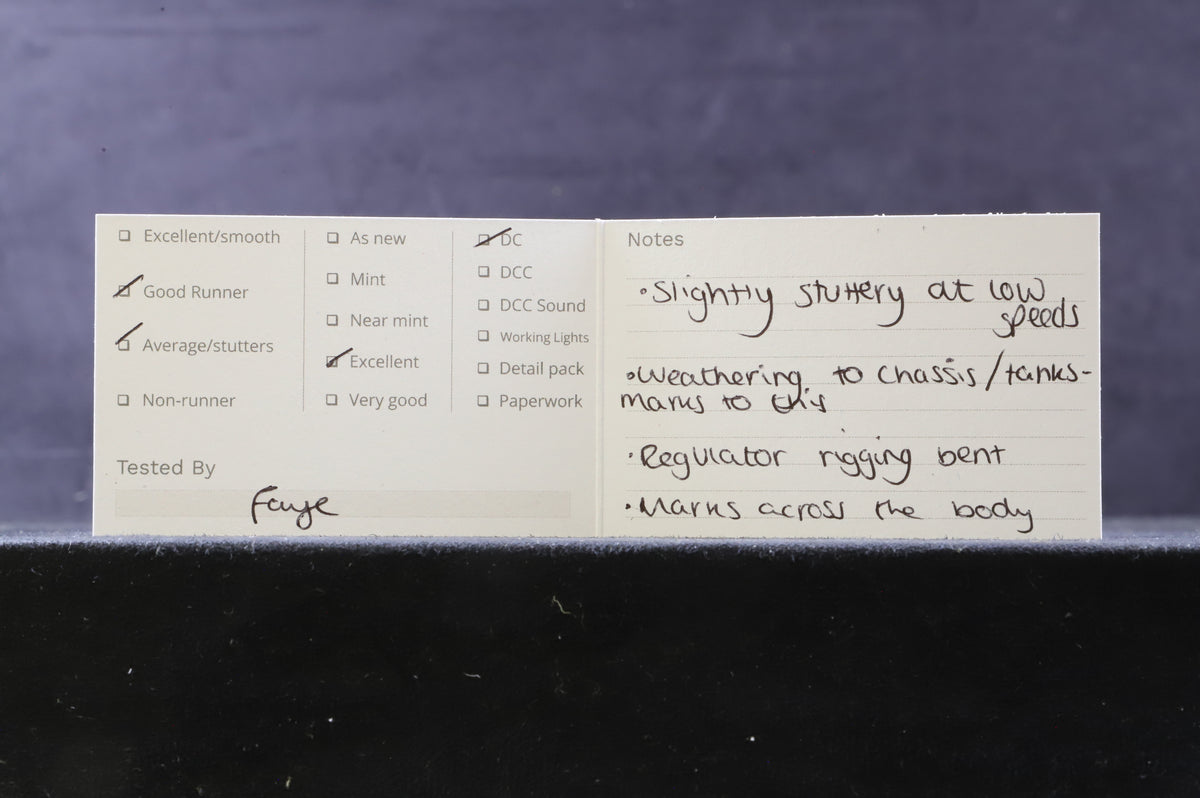 Excellent/smooth
Good Runner
Average/stutters
Non-runner
As new
Mint
Near mint
Excellent
Very good
DC
DCC
DCC Sound
Working Lights
Detail pack
Paperwork
Tested By
Faye
Notes
•Slightly stuttery at low
speeds
•Weathering to chassis/tanks-
marks to this
•Regulator rigging bent
•Marks across the body